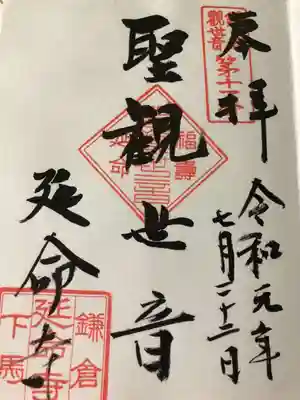 奉拝
観世音
第十一番
令和元年
七月二十三日
聖観世音
福壽
延命
延命寺
鎌倉
延命寺
下馬